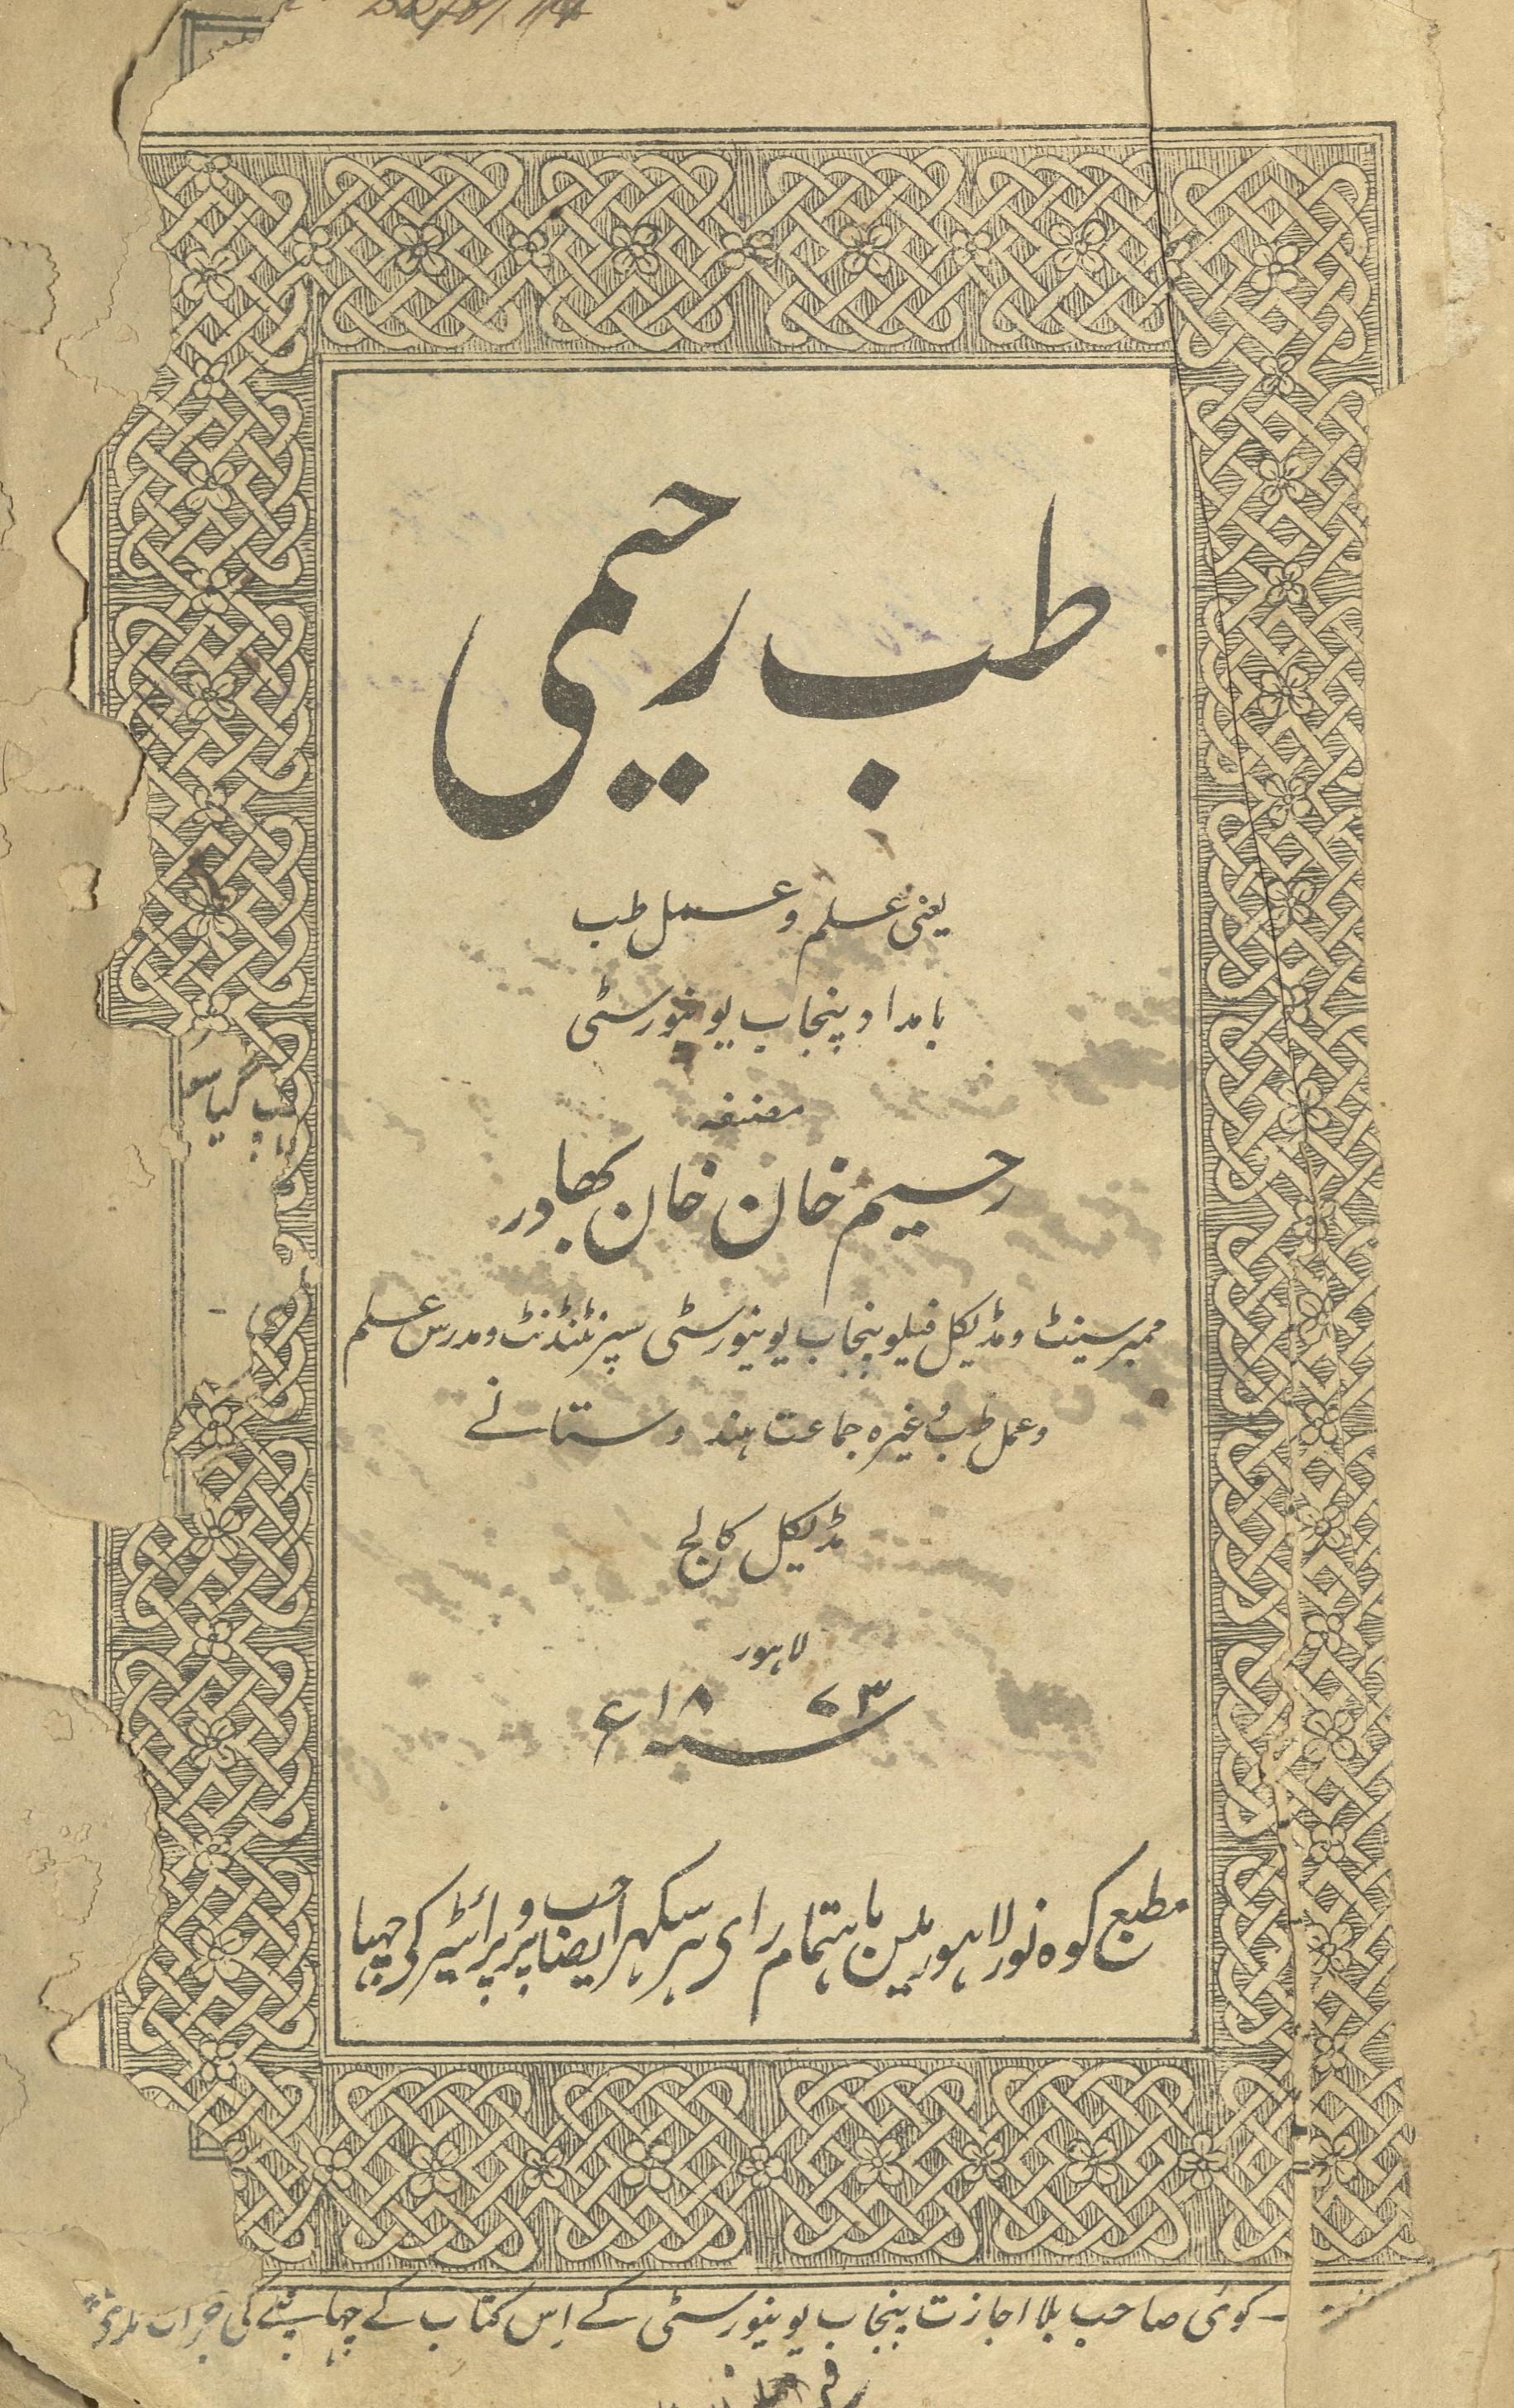 طب رحیمی
یعنی علم و عمل طب
بامداد پنجاب یونیورسٹی
مصنفہ
رحیم خان خان بهادر
ممبر سینٹ و مڈیکل فیلو پنجاب یونیورسٹی سپرنٹنڈنٹ و مدرس علم
و عمل طب وغیرہ جماعت ہندوستانے
مڈیکل کالج
لاہور
سنہ ۱۸۷۳ ء
مطبع کوہ نور لاہور مین باہتمام رای ہرسکہرای صاحب پروپرائیٹر کی چہپا
کوئی صاحب بلا اجازت پنجاب یونیورسٹی کے اِس کتاب کے چہاپنے کی جرات نہ